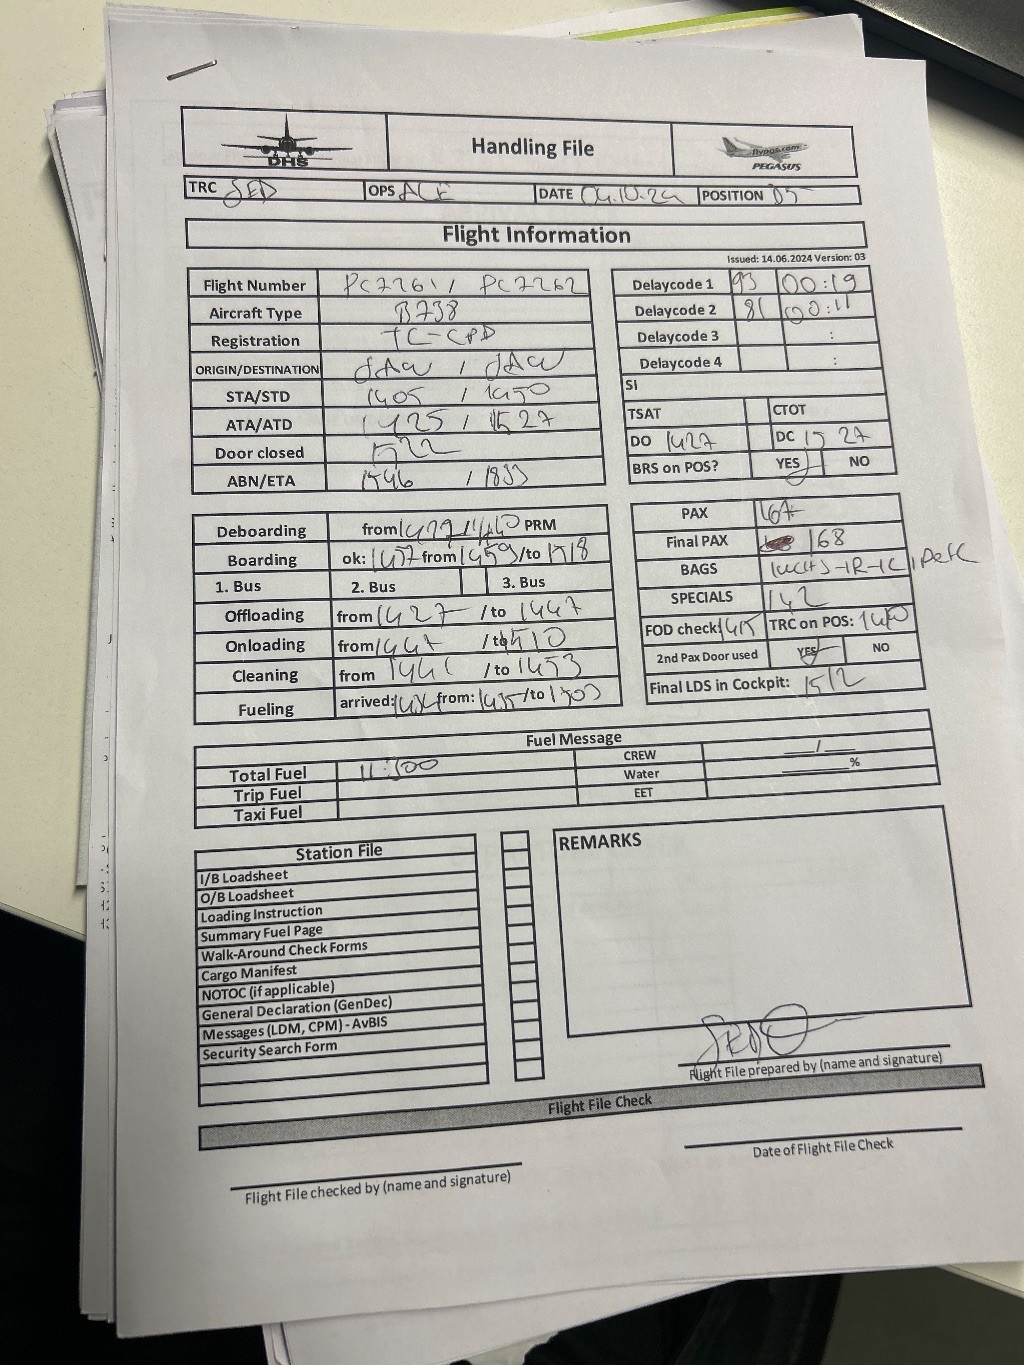 DHS
Handling File
flypgs.com
PEGASUS
TRC SED OPS ACE DATE 04.10.24 POSITION 05
Flight Information
Issued: 14.06.2024 Version: 03
Flight Number PC7261 / PC7262
Aircraft Type B738
Registration TC-CPD
ORIGIN/DESTINATION SAW / SAW
STA/STD 1405 / 1450
ATA/ATD 1425 / 1527
Door closed 1522
ABN/ETA 1546 / 1833
Delaycode 1 93 00:19
Delaycode 2 81 00:11
Delaycode 3 :
Delaycode 4 :
SI
TSAT CTOT
DO 1427 DC 1527
BRS on POS? YES NO
Deboarding from 1429 / 1440 PRM
Boarding ok: 1457 from 1459 /to 1518
1. Bus 2. Bus 3. Bus
Offloading from 1427 /to 1447
Onloading from 1447 /to 1510
Cleaning from /to 1453
Fueling arrived: from: 1435 /to 1503
PAX 167
Final PAX 168
BAGS
SPECIALS 142
FOD check 1415 TRC on POS: 1410
2nd Pax Door used YES NO
Final LDS in Cockpit: 1512
Fuel Message
Total Fuel 11:500 CREW /
Trip Fuel Water %
Taxi Fuel EET
Station File
I/B Loadsheet
O/B Loadsheet
Loading Instruction
Summary Fuel Page
Walk-Around Check Forms
Cargo Manifest
NOTOC (if applicable)
General Declaration (GenDec)
Messages (LDM, CPM) - AvBIS
Security Search Form
REMARKS
Flight File prepared by (name and signature)
Flight File Check
Flight File checked by (name and signature)
Date of Flight File Check